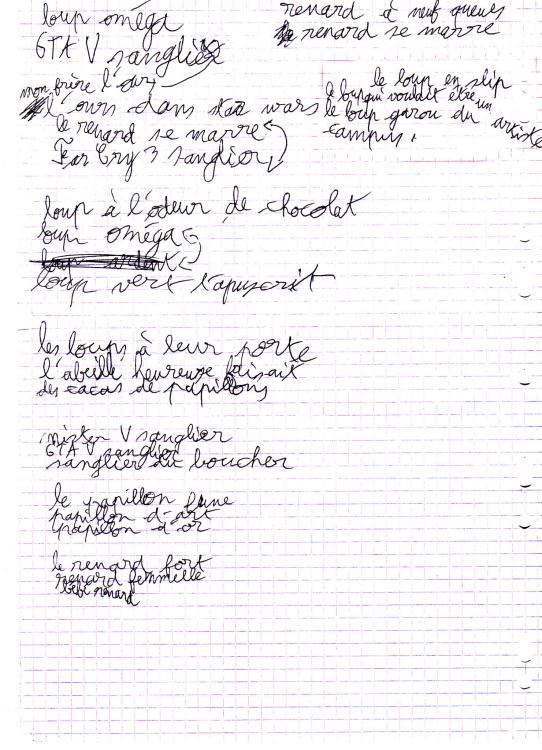 loup oméga
GTA V sanglier
mon frère l'ours
l'ours dans star wars
le renard se marre
Far Cry 3 sanglier
renard à neuf queues
le renard se marre
le loup en slip
le loup qui voulait être un artiste
le loup garou du campus.
loup à l'odeur de chocolat
loup oméga
loup ardent
loup vert
les loups à leur porte
l'abeille heureuse faisait
des cacas de papillons
mister V sanglier
GTA V sanglier
sanglier du boucher
le papillon
papillon d'art
papillon d'or
le renard fort
renard femmelle
bébé renard